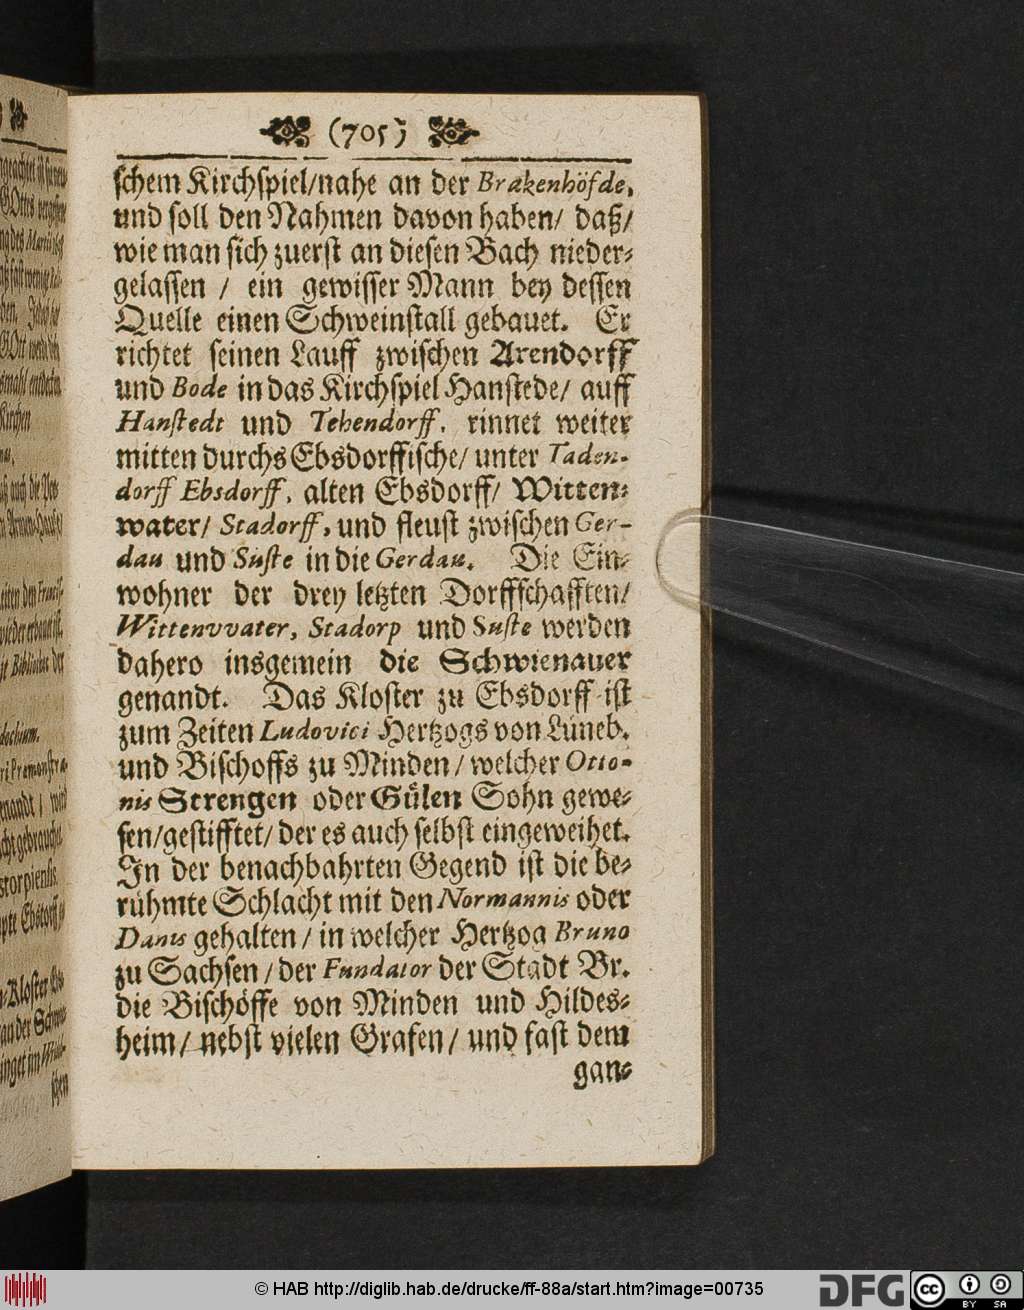 (705)
schem Kirchspiel/nahe an der Brakenhöfde,
und soll den Nahmen davon haben/ daß/
wie man sich zuerst an diesen Bach nieder-
gelassen / ein gewisser Mann bey dessen
Quelle einen Schweinstall gebauet. Er
richtet seinen Lauff zwischen Arendorff
und Bode in das Kirchspiel Hanstede/ auff
Hanstedt und Tehendorff, rinnet weiter
mitten durchs Ebsdorffische/ unter Taden-
dorff Ebsdorff, alten Ebsdorff/ Witten-
water/ Stadorff, und fleust zwischen Ger-
dau und Suste in die Gerdau. Die Ein-
wohner der drey letzten Dorffschafften/
Wittenvvater, Stadorp und Suste werden
dahero insgemein die Schwienauer
genandt. Das Kloster zu Ebsdorff ist
zum Zeiten Ludovici Hertzogs von Lüneb.
und Bischoffs zu Minden / welcher Otto-
nis Strengen oder Gülen Sohn gewe-
sen/gestifftet/ der es auch selbst eingeweihet.
In der benachbahrten Gegend ist die be-
rühmte Schlacht mit den Normannis oder
Danis gehalten / in welcher Hertzog Bruno
zu Sachsen / der Fundator der Stadt Br.
die Bischöffe von Minden und Hildes-
heim / nebst vielen Grafen / und fast dem
gan-
© HAB http://diglib.hab.de/drucke/ff-88a/start.htm?image=00735
DFG
cc BY SA